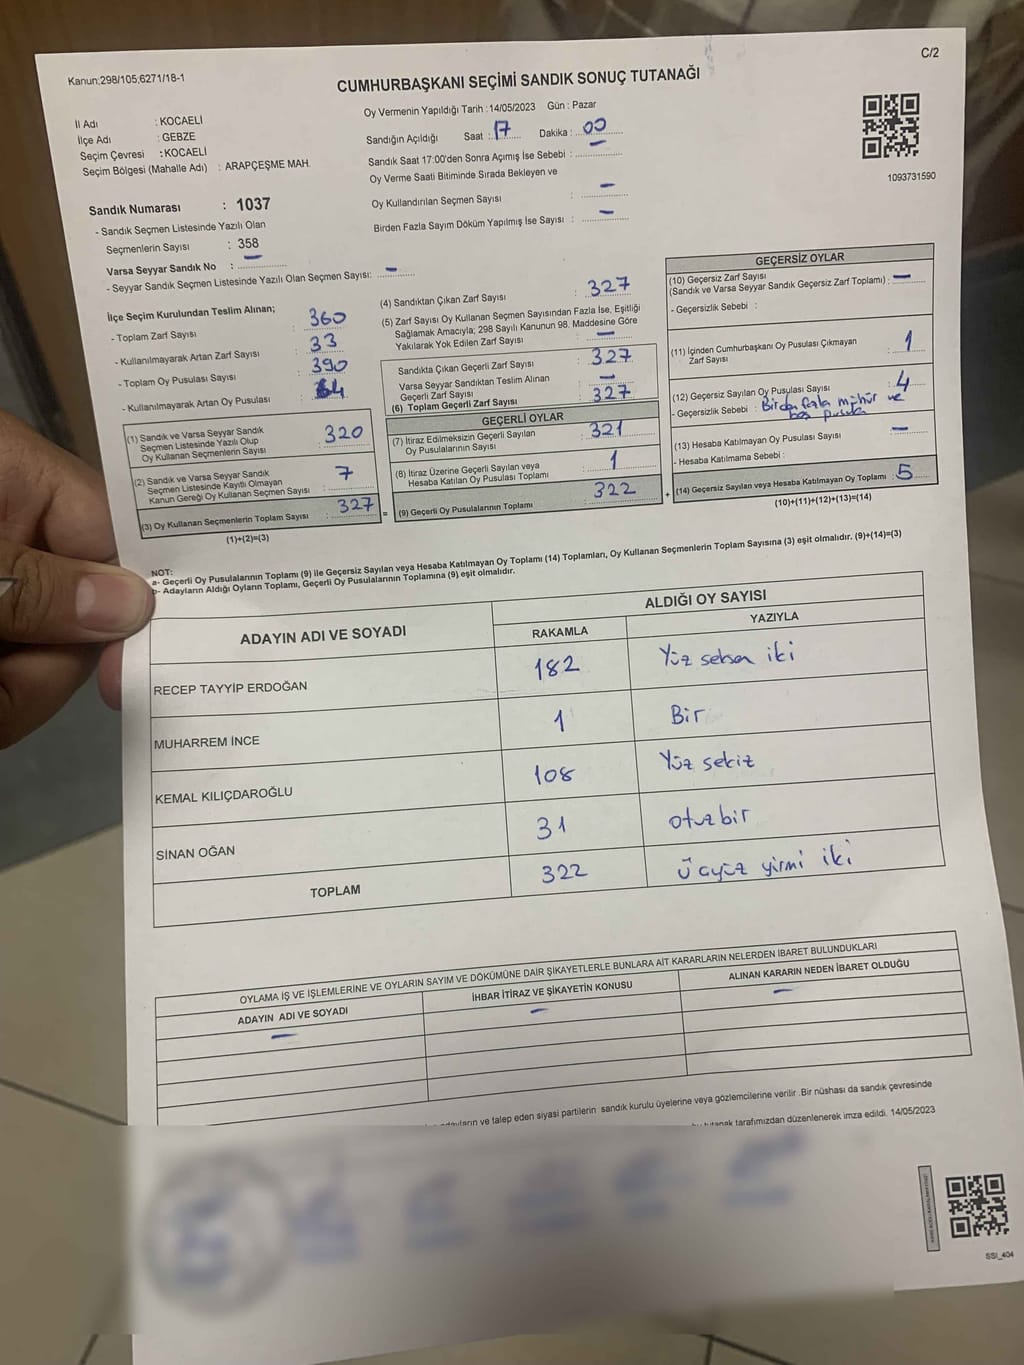 Kanun;298/105;6271/18-1
C/2
CUMHURBAŞKANI SEÇİMİ SANDIK SONUÇ TUTANAĞI
İl Adı : KOCAELİ
İlçe Adı : GEBZE
Seçim Çevresi : KOCAELİ
Seçim Bölgesi (Mahalle Adı) : ARAPÇEŞME MAH.
Oy Vermenin Yapıldığı Tarih : 14/05/2023 Gün : Pazar
Sandığın Açıldığı Saat : 17 Dakika : 00
Sandık Saat 17:00'den Sonra Açımış İse Sebebi : –
Oy Verme Saati Bitiminde Sırada Bekleyen ve
Oy Kullandırılan Seçmen Sayısı : –
Birden Fazla Sayım Döküm Yapılmış İse Sayısı : –
1093731590
Sandık Numarası : 1037
- Sandık Seçmen Listesinde Yazılı Olan
Seçmenlerin Sayısı : 358
Varsa Seyyar Sandık No : –
- Seyyar Sandık Seçmen Listesinde Yazılı Olan Seçmen Sayısı: –
İlçe Seçim Kurulundan Teslim Alınan;
- Toplam Zarf Sayısı : 360
- Kullanılmayarak Artan Zarf Sayısı : 33
- Toplam Oy Pusulası Sayısı : 390
- Kullanılmayarak Artan Oy Pusulası : 64
(1) Sandık ve Varsa Seyyar Sandık
Seçmen Listesinde Yazılı Olup
Oy Kullanan Seçmenlerin Sayısı : 320
(2) Sandık ve Varsa Seyyar Sandık
Seçmen Listesinde Kayıtlı Olmayan
Kanun Gereği Oy Kullanan Seçmen Sayısı : 7
(3) Oy Kullanan Seçmenlerin Toplam Sayısı : 327
(1)+(2)=(3)
(4) Sandıktan Çıkan Zarf Sayısı : 327
(5) Zarf Sayısı Oy Kullanan Seçmen Sayısından Fazla İse, Eşitliği
Sağlamak Amacıyla; 298 Sayılı Kanunun 98. Maddesine Göre
Yakılarak Yok Edilen Zarf Sayısı : –
Sandıkta Çıkan Geçerli Zarf Sayısı : 327
Varsa Seyyar Sandıktan Teslim Alınan
Geçerli Zarf Sayısı : –
(6) Toplam Geçerli Zarf Sayısı : 327
GEÇERLİ OYLAR
(7) İtiraz Edilmeksizin Geçerli Sayılan
Oy Pusulalarının Sayısı : 321
(8) İtiraz Üzerine Geçerli Sayılan veya
Hesaba Katılan Oy Pusulası Toplamı : 1
= (9) Geçerli Oy Pusulalarının Toplamı : 322
GEÇERSİZ OYLAR
(10) Geçersiz Zarf Sayısı
(Sandık ve Varsa Seyyar Sandık Geçersiz Zarf Toplamı) : –
- Geçersizlik Sebebi :
(11) İçinden Cumhurbaşkanı Oy Pusulası Çıkmayan
Zarf Sayısı : 1
(12) Geçersiz Sayılan Oy Pusulası Sayısı : 4
- Geçersizlik Sebebi : Birden fazla mühür ve
boş pusula
(13) Hesaba Katılmayan Oy Pusulası Sayısı : –
- Hesaba Katılmama Sebebi :
+ (14) Geçersiz Sayılan veya Hesaba Katılmayan Oy Toplamı : 5
(10)+(11)+(12)+(13)=(14)
NOT:
a- Geçerli Oy Pusulalarının Toplamı (9) ile Geçersiz Sayılan veya Hesaba Katılmayan Oy Toplamı (14) Toplamları, Oy Kullanan Seçmenlerin Toplam Sayısına (3) eşit olmalıdır. (9)+(14)=(3)
b- Adayların Aldığı Oyların Toplamı, Geçerli Oy Pusulalarının Toplamına (9) eşit olmalıdır.
ADAYIN ADI VE SOYADI
ALDIĞI OY SAYISI
RAKAMLA YAZIYLA
RECEP TAYYİP ERDOĞAN 182 Yüz seksen iki
MUHARREM İNCE 1 Bir
KEMAL KILIÇDAROĞLU 108 Yüz sekiz
SİNAN OĞAN 31 otuzbir
TOPLAM 322 üçyüz yirmi iki
OYLAMA İŞ VE İŞLEMLERİNE VE OYLARIN SAYIM VE DÖKÜMÜNE DAİR ŞİKAYETLERLE BUNLARA AİT KARARLARIN NELERDEN İBARET BULUNDUKLARI
ADAYIN ADI VE SOYADI İHBAR İTİRAZ VE ŞİKAYETİN KONUSU ALINAN KARARIN NEDEN İBARET OLDUĞU
– – –
ve talep eden siyasi partilerin sandık kurulu üyelerine veya gözlemcilerine verilir .Bir nüshası da sandık çevresinde
tutanak tarafımızdan düzenlenerek imza edildi. 14/05/2023
SSI_404